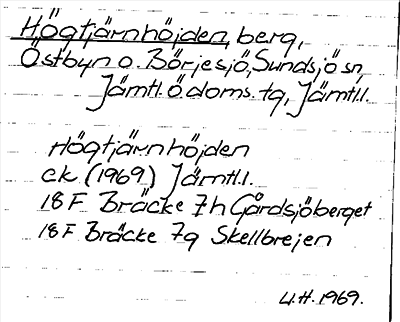 Högtjärnhöjden, berg,
Östbyn o. Börjesjö, Sundsjö sn,
Jämtl. ö doms. tg, Jämtl.l.
Högtjärnhöjden
ek (1969) Jämtl.l.
18 F Bräcke 7h Gårdsjöberget
18 F Bräcke 7g Skellbrejen
U.H. 1969.